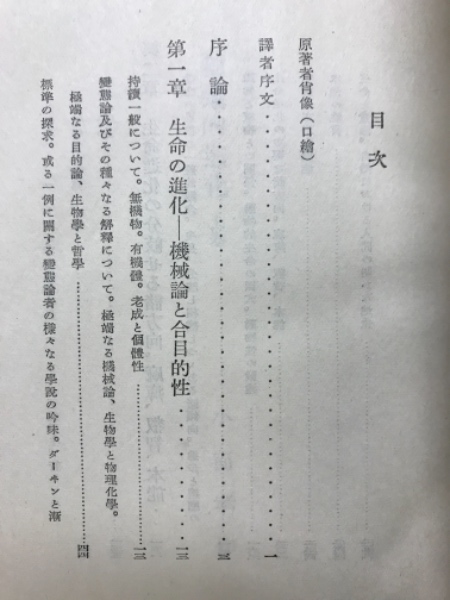 目次
原著者肖像(口繪)
譯者序文……一
序論……三
第一章 生命の進化—機械論と合目的性……一三
持續一般について。無機物。有機體。老成と個體性……一三
變態論及びその種々なる解釋について。極端なる機械論、生物學と物理化學。
極端なる目的論、生物學と哲學……四四
標準の探求。或る一例に關する變態論者の樣々なる學說の吟味。ダーヰンと漸